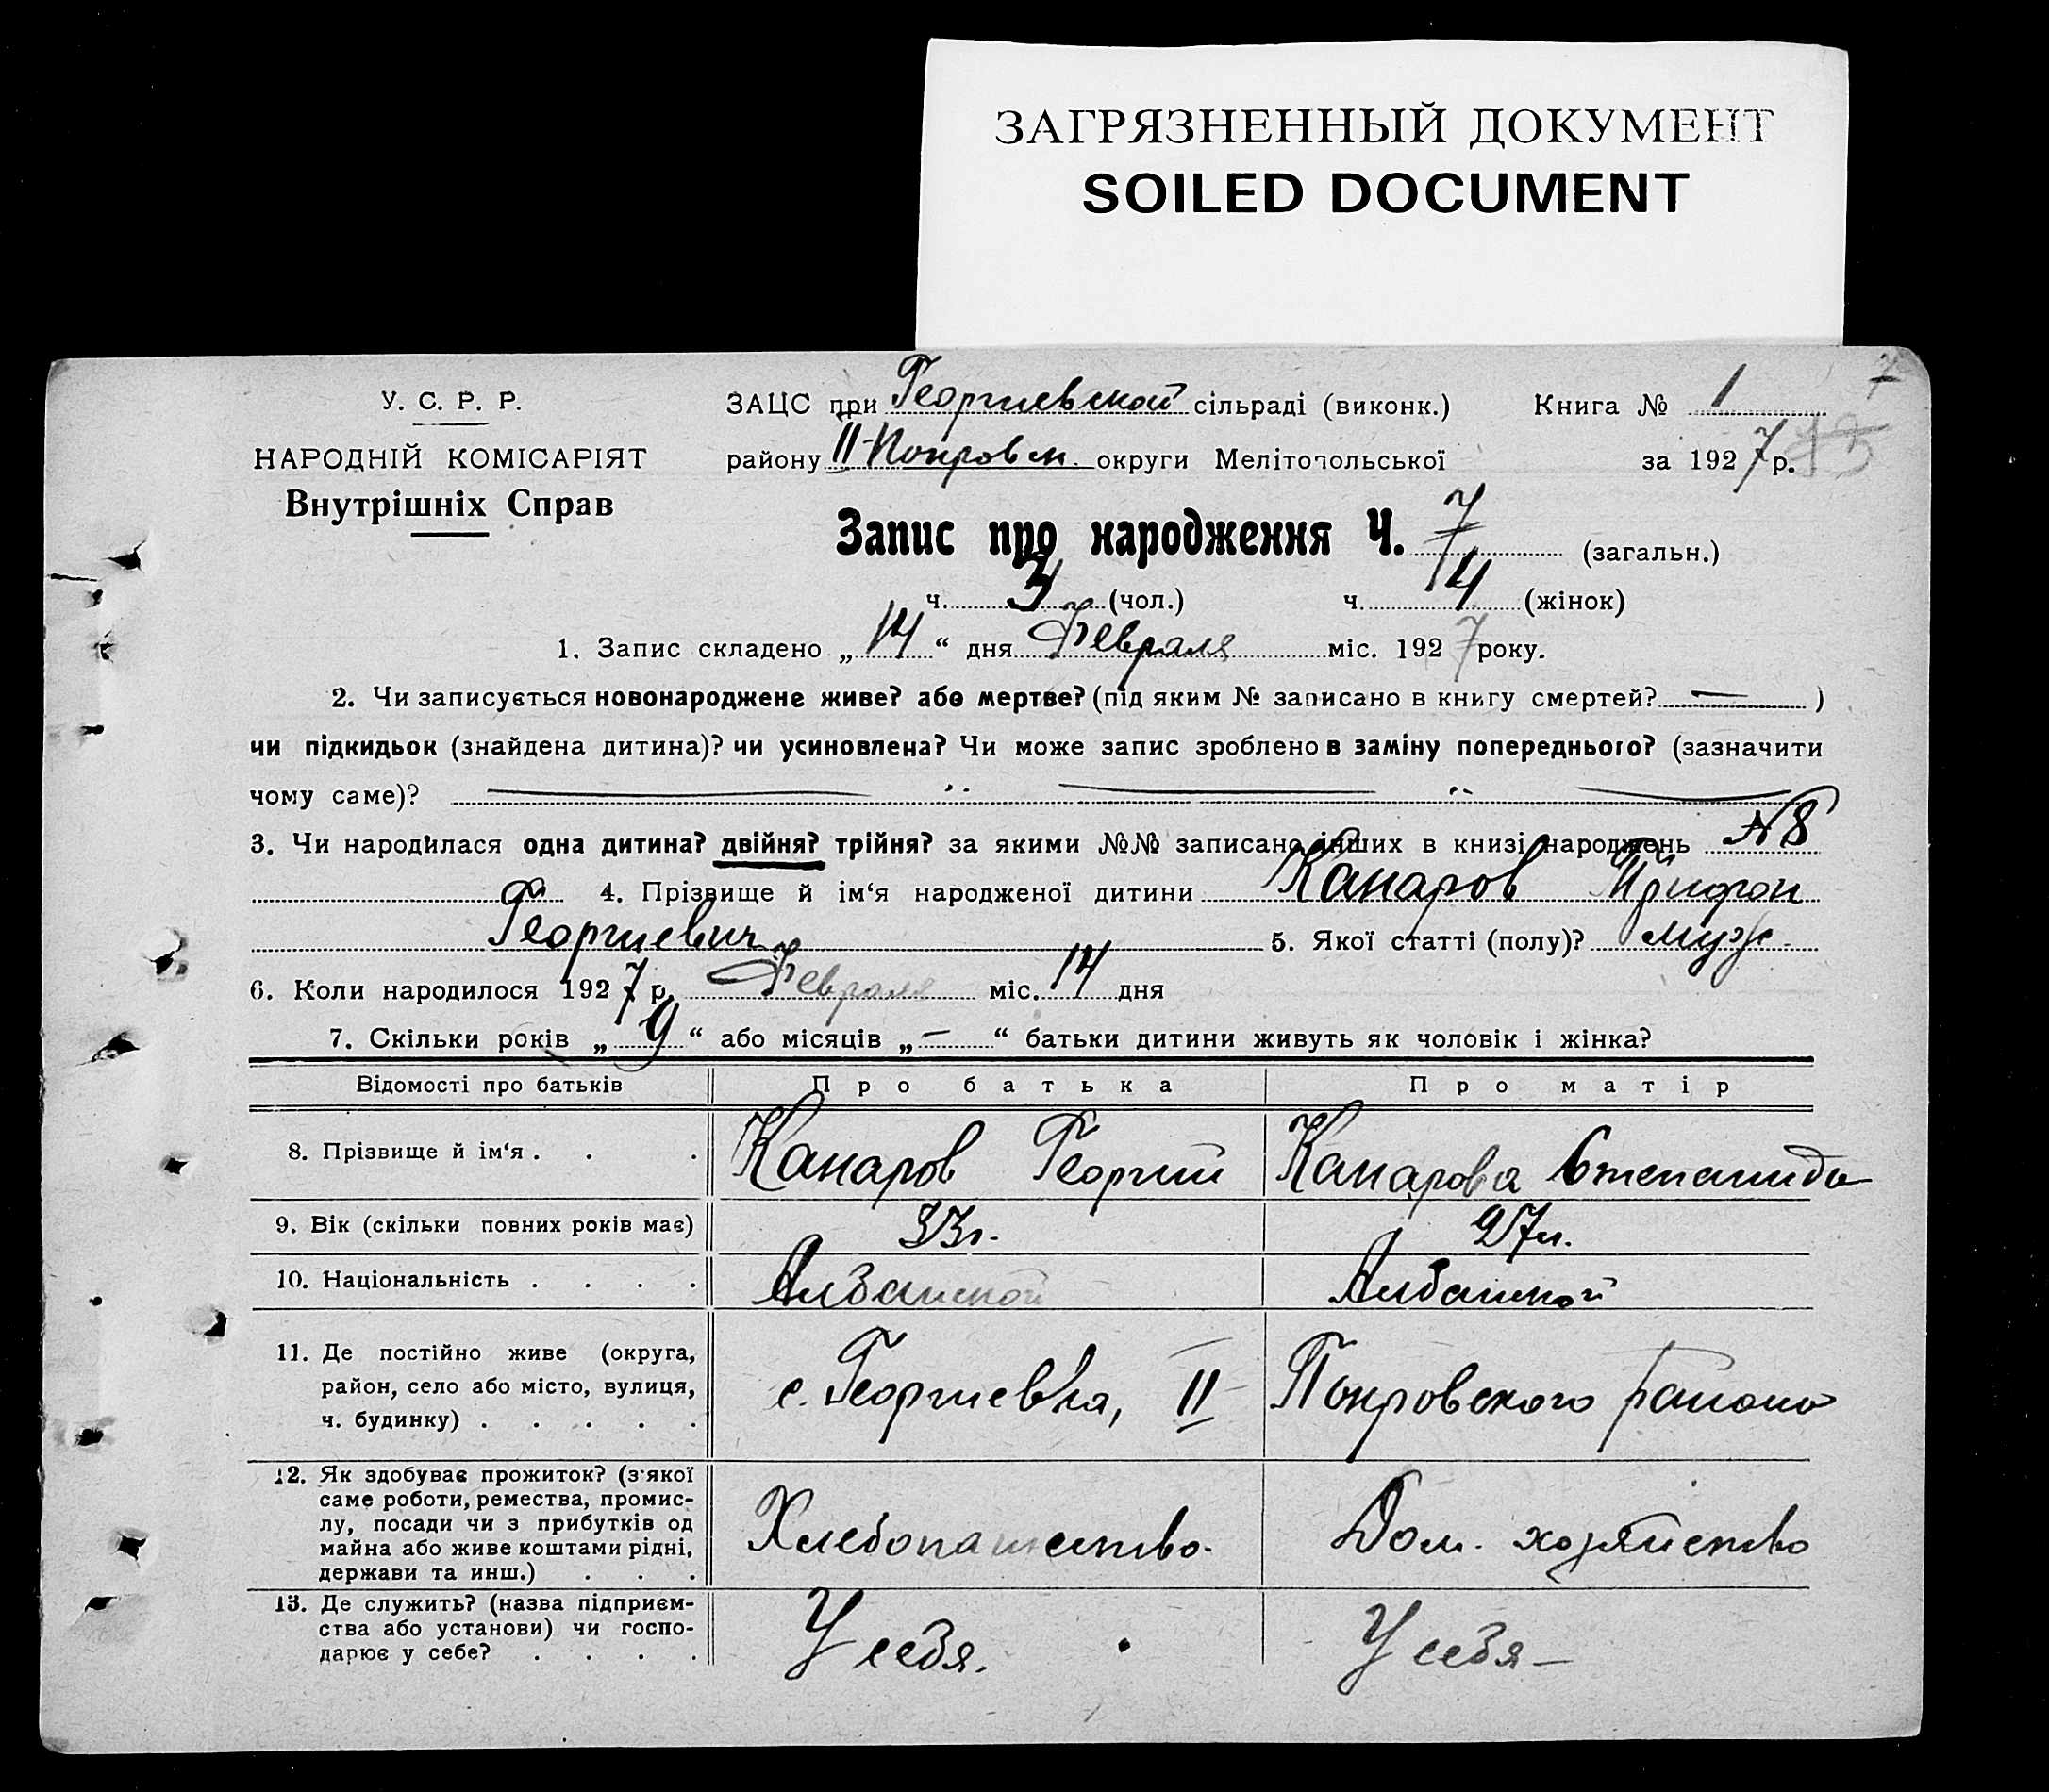 ЗАГРЯЗНЕННЫЙ ДОКУМЕНТ
SOILED DOCUMENT
7
У. С. Р. Р.
НАРОДНІЙ КОМІСАРІЯТ
Внутрішніх Справ
ЗАЦС при Георгиевской сільраді (виконк.) Книга № 1
району II-Покровск. округи Мелітопольської за 1927 р.
Запис про народження Ч. 7 (загальн.)
ч. 3 (чол.) ч. 4 (жінок)
1. Запис складено „14“ дня Февраля міс. 1927 року.
2. Чи записується новонароджене живе? або мертве? (під яким № записано в книгу смертей? — )
чи підкидьок (знайдена дитина)? чи усиновлена? Чи може запис зроблено в заміну попереднього? (зазначити
чому саме)?
3. Чи народилася одна дитина? двійня? трійня? за якими №№ записано інших в книзі народжень №8
4. Прізвище й ім‘я народженої дитини Канаров Трифон
Георгиевич 5. Якої статті (полу)? муж.
6. Коли народилося 1927 р. Февраля міс. 14 дня
7. Скільки років „9“ або місяців „—“ батьки дитини живуть як чоловік і жінка?
Відомості про батьків Про батька Про матір
8. Прізвище й ім‘я . . . Канаров Георгий Канарова Степанида
9. Вік (скільки повних років має) 33 г. 27 л.
10. Національність . . . . Албанской Албанской
11. Де постійно живе (округа,
район, село або місто, вулиця,
ч. будинку) . . . . . с. Георгиевка, II Покровского района
12. Як здобуває прожиток? (з якої
саме роботи, ремества, промис-
лу, посади чи з прибутків од
майна або живе коштами рідні,
держави та инш.) . . . Хлебопашество. Дом. хозяйство
13. Де служить? (назва підприєм-
ства або установи) чи госпо-
дарює у себе? . . . . У себя. У себя —